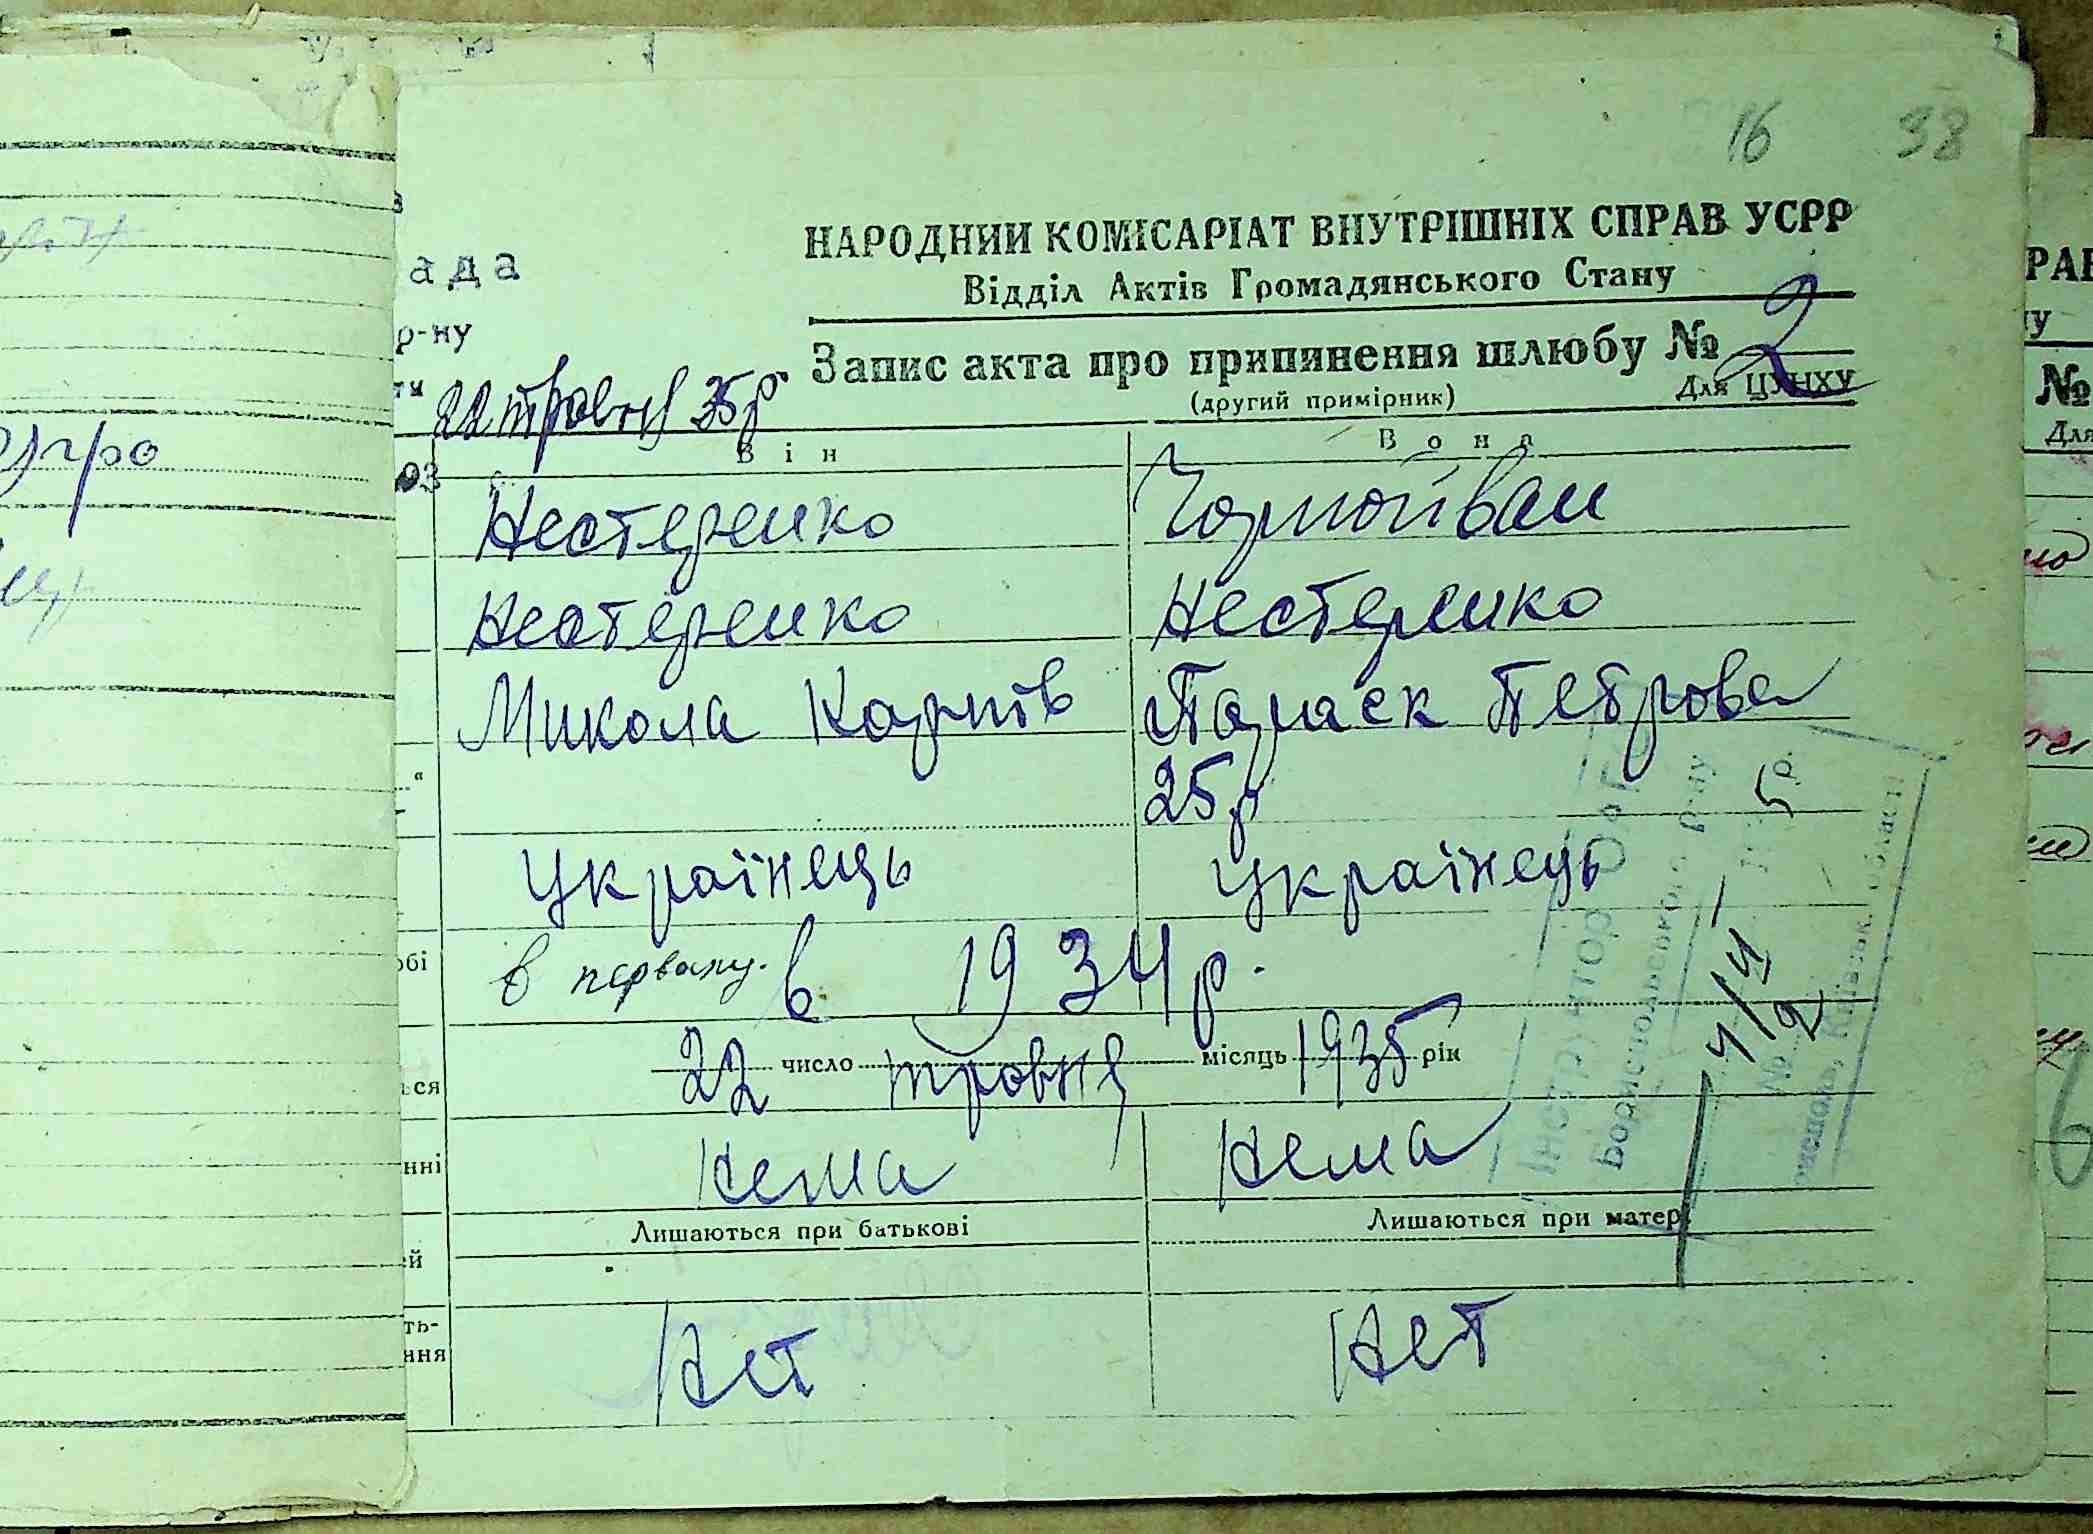 16 98
НАРОДНИЙ КОМІСАРІАТ ВНУТРІШНІХ СПРАВ УСРР
Відділ Актів Громадянського Стану
ада
р-ну
Запис акта про припинення шлюбу № 2
(другий примірник) Для ЦУНХУ
22 травня 35р.
Він Вона
Нестеренко Чорнойван
Нестеренко Нестеренко
Микола Карпів Параск Петрова
25р
Українець Українець
обі в первому. в 1934р.
22 число травня місяць 1935 рік
ься
нні Нема Нема
Лишаються при батькові Лишаються при матері
ей
ть-
ння Нет Нет
Інструктор
Бориспольського р-ну
№ 2
4/VI 5 р.
Київськ. області
РАВ
№
Для